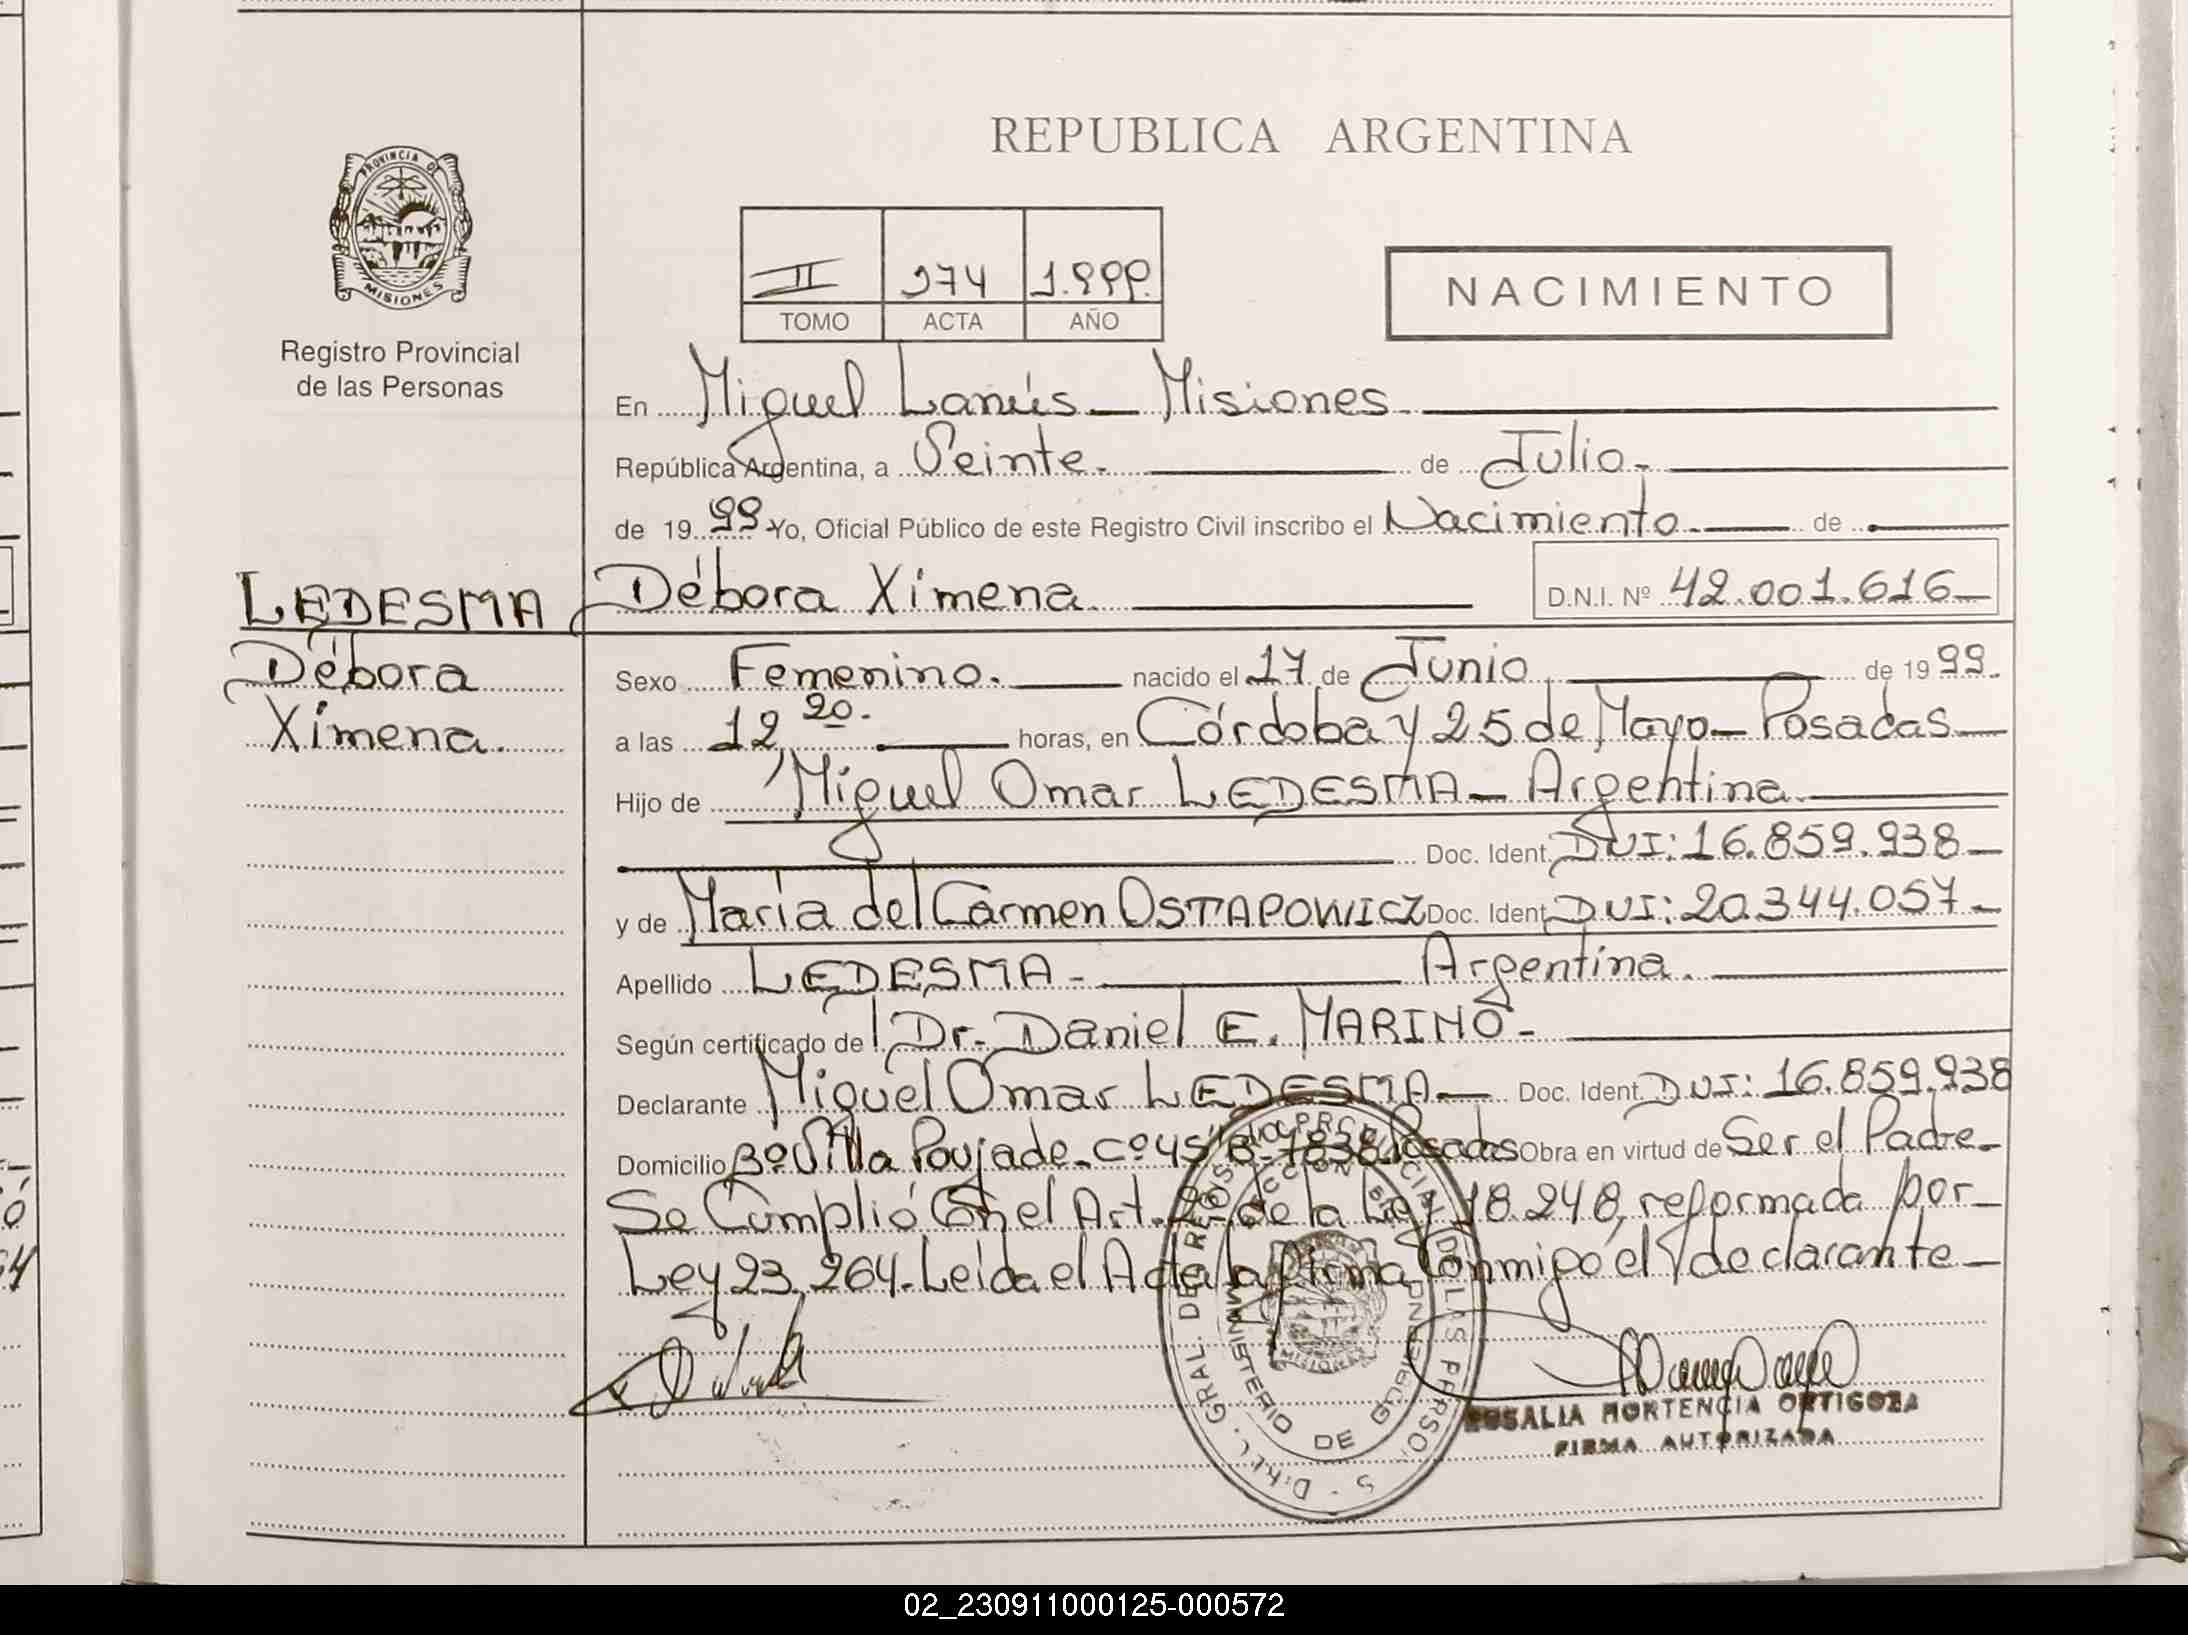 REPUBLICA ARGENTINA
PROVINCIA DE
MISIONES
Registro Provincial
de las Personas
II 974 1.999.
TOMO ACTA AÑO
NACIMIENTO
En Miguel Lanús - Misiones
República Argentina, a Veinte. de Julio.
de 1999 Yo, Oficial Público de este Registro Civil inscribo el Nacimiento. de
LEDESMA
Débora
Ximena.
Débora Ximena D.N.I. Nº 42.001.616
Sexo Femenino. nacido el 17 de Junio de 1999.
a las 12 20. horas, en Córdoba y 25 de Mayo - Posadas
Hijo de Miguel Omar LEDESMA - Argentina
Doc. Ident. DNI: 16.859.938
y de María del Carmen OSTAPOWICZ Doc. Ident. DNI: 20.344.057
Apellido LEDESMA - Argentina.
Según certificado de Dr. Daniel E. MARINO -
Declarante Miguel Omar LEDESMA Doc. Ident. DNI: 16.859.938
Domicilio Bº Villa Poujade. Cº 45 "B" 7838. Posadas Obra en virtud de Ser el Padre.
Se Cumplió Con el Art. 2º de la Ley 18.248, reformada por
Ley 23.264. Leída el Acta la firma Conmigo el declarante
ROSALIA HORTENCIA ORTIGOZA
FIRMA AUTORIZADA
MINISTERIO DE GOBIERNO
MISIONES
02_230911000125-000572